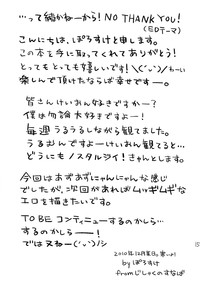 …って続かねーから! NO THANK YOU!
(EDテーマ)
こんにちは、ぽろすけと申します。
この本を手に取ってくれてありがとう!
とってもとっても嬉しいです!\(´ω`)/わーい
楽しんで頂けたならば幸せですー。
皆さんけいおん好きですかー?
僕は勿論大好きですよー!
毎週うるうるしながら観てました。
うるおんですよーけいおん観てると…
どうにもノスタルジイ!きゃんとします。
今回はあずあずにゃんにゃんな感じ
でしたが、次回があればムッギムギな
エロを描きたいです。
TO BE コンティニューするのかしら…
するのかしらー!
ではまたねー(´ω`)ノシ
2010年12月某日。寒いよ!
by ぽろすけ
from じしゃくのすなば
15